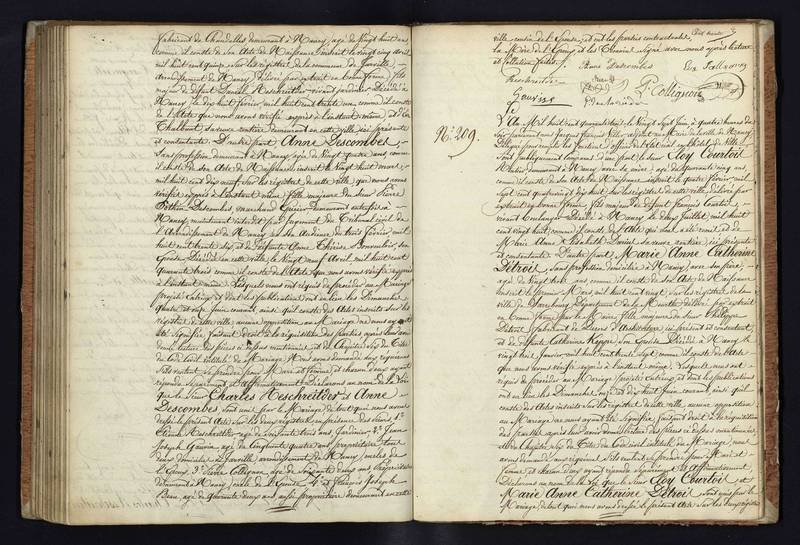 fabricant de Chandelles demeurant à Nancy, âgé de Vingt huit ans
comme il conste de son Acte de Naissance inscrit le vingt cinq avril
mil huit cent quinze sur les registres de la commune de Jarville,
arrondissement de Nancy, délivré par extrait en bonne forme, fils
majeur de défunt Neschreithter vivant jardinier Décédé à
Nancy le dix huit février mil huit cent trente un, comme il conste
de l'Acte que nous avons vérifié exprès à l'instant même, et d'
Thalbout, sa veuve rentière demeurant en cette ville ici présente
et contentante. D'autre part Anne Descombes,
Sans profession demeurant à Nancy âgée de Vingt quatre ans, comme
il conste de son Acte de Naissance inscrit le Vingt huit
mil huit cent dix neuf sur les registres de cette ville que nous avons
vérifié exprès à l'instant même, fille majeure du Sieur Pierre
Descombes, marchand Épicier demeurant autrefois à
Nancy, maintenant interdit par Jugement du Tribunal civil de
l'Arrondissement de Nancy en son Audience du trois février mil
huit cent trente six, et de défunte Anne Thérèse son
Épouse Décédée en cette ville le Vingt neuf Avril mil huit cent
quarante trois comme il conste de l'Acte que nous avons vérifié exprès
à l'instant même. Lesquels nous ont requis de procéder au Mariage
projetté entre eux et dont les publications ont eu lieu les Dimanches
quatre et onze Juin courant, ainsi qu'il conste des Actes inscrits sur les
registres de cette ville, aucune opposition au Mariage ne nous ayant
été signifiée, faisant droit à la réquisition des parties après leur avoir
donné lecture des pièces ci dessus mentionnées et du Chapitre Six du Titre
du Code Civil intitulé du Mariage, Nous avons demandé aux requérans
s'ils veulent se prendre pour Mari et femme, et chacun d'eux ayant
répondu séparément et affirmativement, Déclarons au nom de la Loi
que le Sieur Charles Neschreithter et Anne
Descombes sont unis par le Mariage, de tout quoi nous avons
dressé le présent Acte sur les deux registres en présence des Sieurs 1°
Étienne Neschreithter âgé de Soixante trois ans, Jardinier 2° Jean
Joseph Gauvin âgé de Cinquante quatre ans propriétaire tous
deux domiciliés à Jarville arrondissement de Nancy, oncles de
l'Époux, 3° Pierre Collignon âgé de Soixante deux ans propriétaire
demeurant à Nancy, oncle de l'Épouse 4° et François Joseph
Beau âgé de quarante deux ans aussi propriétaire demeurant en cette
ville cousin de l'Épouse, et ont les parties contractantes,
la Mère de l'Époux et les Témoins signé avec nous après lecture
et Collation faites.
Anne Descombes
Neschreithter
Gauvin
P. Collignon
N° 209.
L'An Mil huit cent quarante trois le Vingt Sept Juin à quatre heures du
Soir pardevant nous Jacques François adjoint au Maire de la ville de Nancy
Délégué pour remplir les fonctions d'officier de l'état civil en l'hôtel de Ville
Sont publiquement comparus d'une part le Sieur Cloy Courtoit
Rentier demeurant à Nancy avec sa mère, âgé de quarante cinq ans
comme il conste de son Acte de Naissance inscrit le quatre février mil
sept cent quatre vingt dix huit sur les registres de cette ville, délivré par
extrait en bonne forme, fils majeur de défunt François Courtoit,
vivant Boulanger Décédé à Nancy le deux Juillet mil huit
cent vingt huit, comme il conste de l'Acte qui nous a été remis, et de
Marie Anne Élisabeth sa veuve rentière, ici présente
et contentante. D'autre part Marie Anne Catherine
Détroit, Sans profession domiciliée à Nancy, avec son père,
âgée de Vingt trois ans comme il conste de son Acte de Naissance
inscrit le Mars mil huit cent vingt, sur les registres de la
ville de Sarrebourg Département de la Meurthe délivré par extrait
en bonne forme par le Maire, fille majeure du Sieur Philippe
Détroit, fabricant de ici présent et contentant,
et de défunte Catherine son Épouse Décédée à Nancy le
vingt trois Janvier mil huit cent trente Sept, comme il conste de l'Acte
que nous avons vérifié exprès à l'instant même. Lesquels nous ont
requis de procéder au Mariage projetté entre eux, et dont les publications
ont eu lieu les Dimanches onze et dix huit Juin courant ainsi qu'il
conste des Actes inscrits sur les registres de cette ville, aucune opposition
au Mariage ne nous ayant été signifiée, faisant droit à la réquisition
des parties après leur avoir donné lecture des pièces ci dessus mentionnées
et du Chapitre Six du Titre du Code Civil intitulé du Mariage, nous
avons demandé aux requérans s'ils veulent se prendre pour Mari et
femme, et chacun d'eux ayant répondu séparément et affirmativement
Déclarons au nom de la Loi que le Sieur Cloy Courtoit et
Marie Anne Catherine Détroit sont unis par le
Mariage, de tout quoi nous avons dressé le présent Acte sur les deux registres